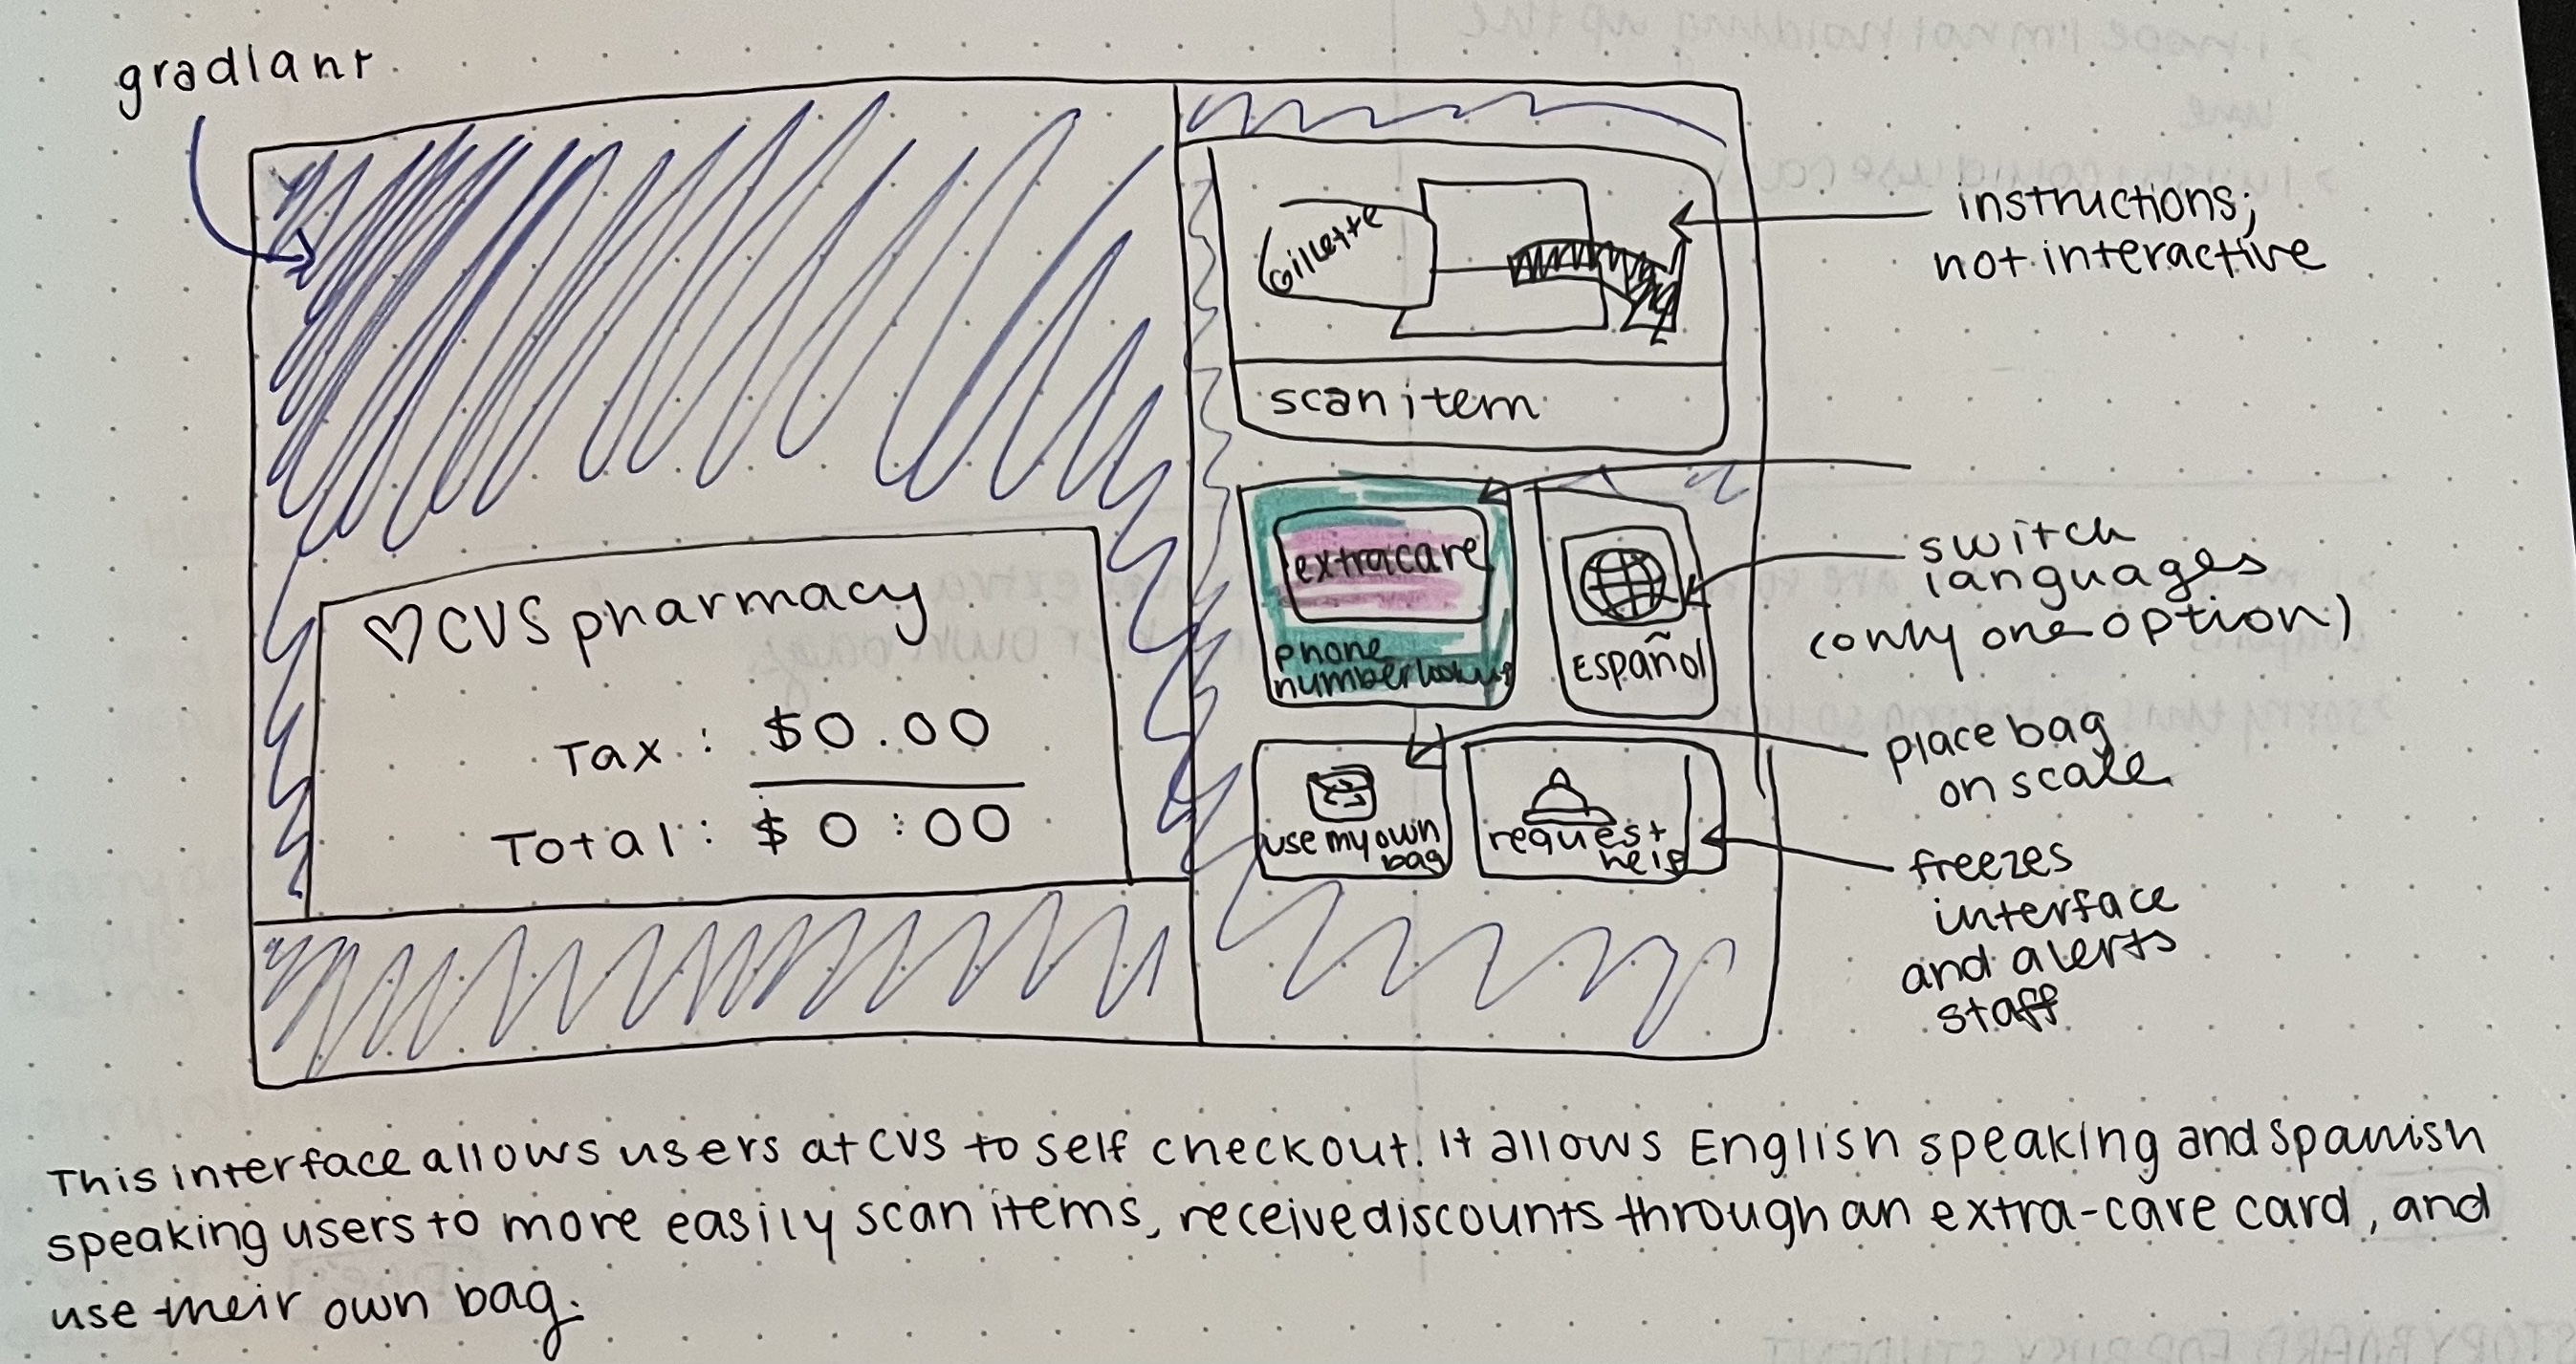 gradiant
Gillette
scan item
instructions;
not interactive
extracare
phone
number lookup
Español
switch
languages
(only one option)
♡CVS pharmacy
Tax: $0.00
Total: $0:00
use my own
bag
request
help
place bag
on scale
freezes
interface
and alerts
staff
This interface allows users at CVS to self checkout. It allows English speaking and spanish
speaking users to more easily scan items, receive discounts through an extra-care card, and
use their own bag.